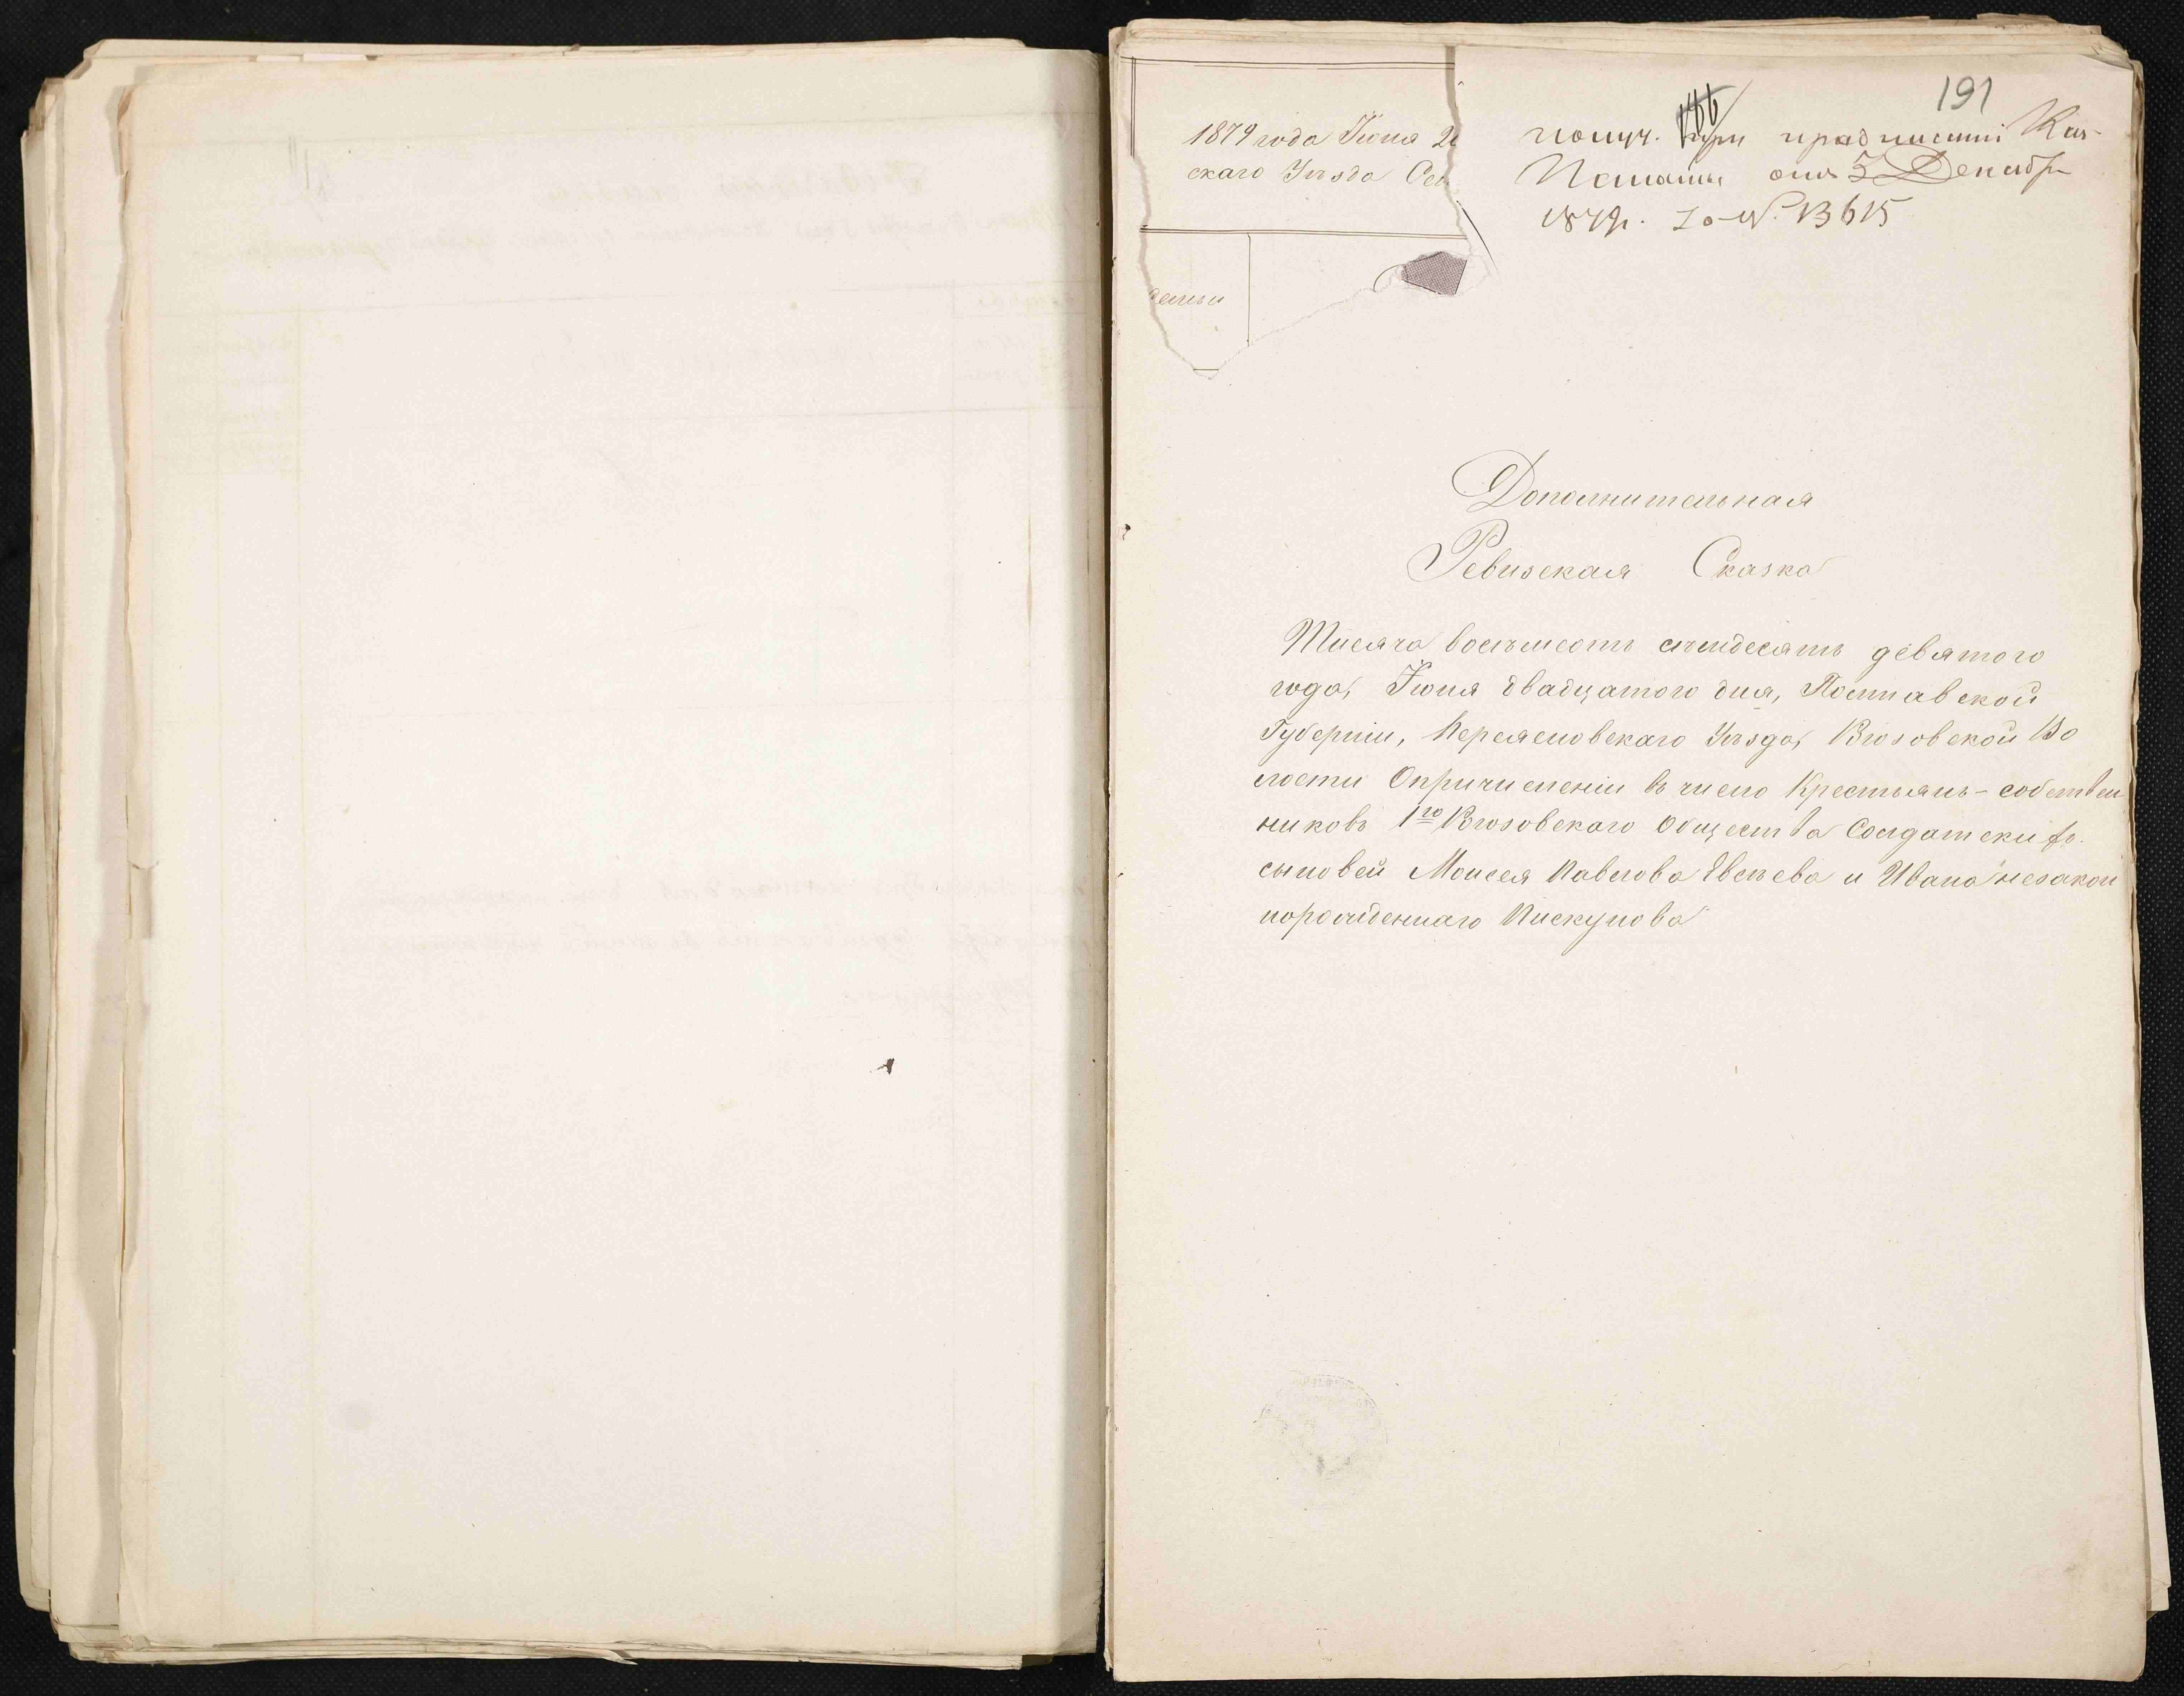 191
166
1879 года Іюня 2
скаго Уѣзда Се
семьи
получ. при предписаніи Каз.
Палаты отъ 3 Декабр
1879г. за №. 13615
Дополнительная
Ревизская Сказка
Тысяча восѣмсотъ семдесятъ девятого
года, Іюня двадцатого дня, Полтавской
Губерніи, Переясловскаго Уѣзда, Вьюовской Во
лости О причисленіи въ число Крестьянъ-собствен
никовъ 1го Вьюовскаго Общества Солдатскихъ
сыновей Моисея Павлова Евсѣева и Ивана незакон
норожденнаго Пискунова